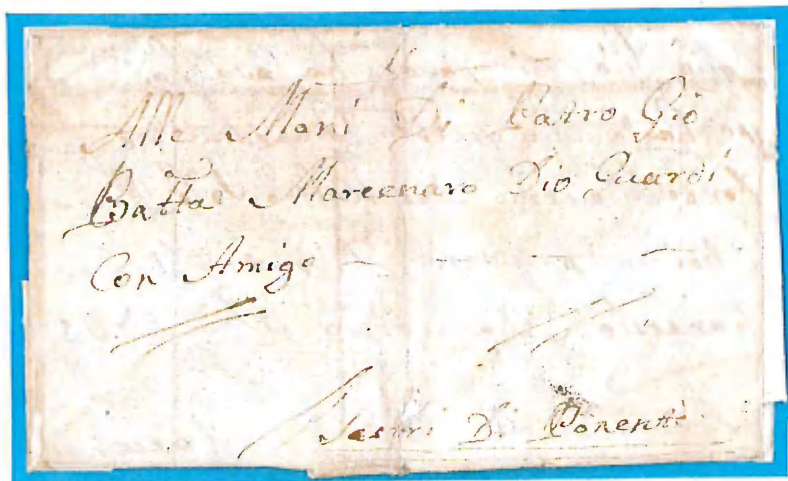 Alle Mani Di Patro Gio
Batta Marcenaro Dio Guardi
Con Amigo
Sestri Di Ponente